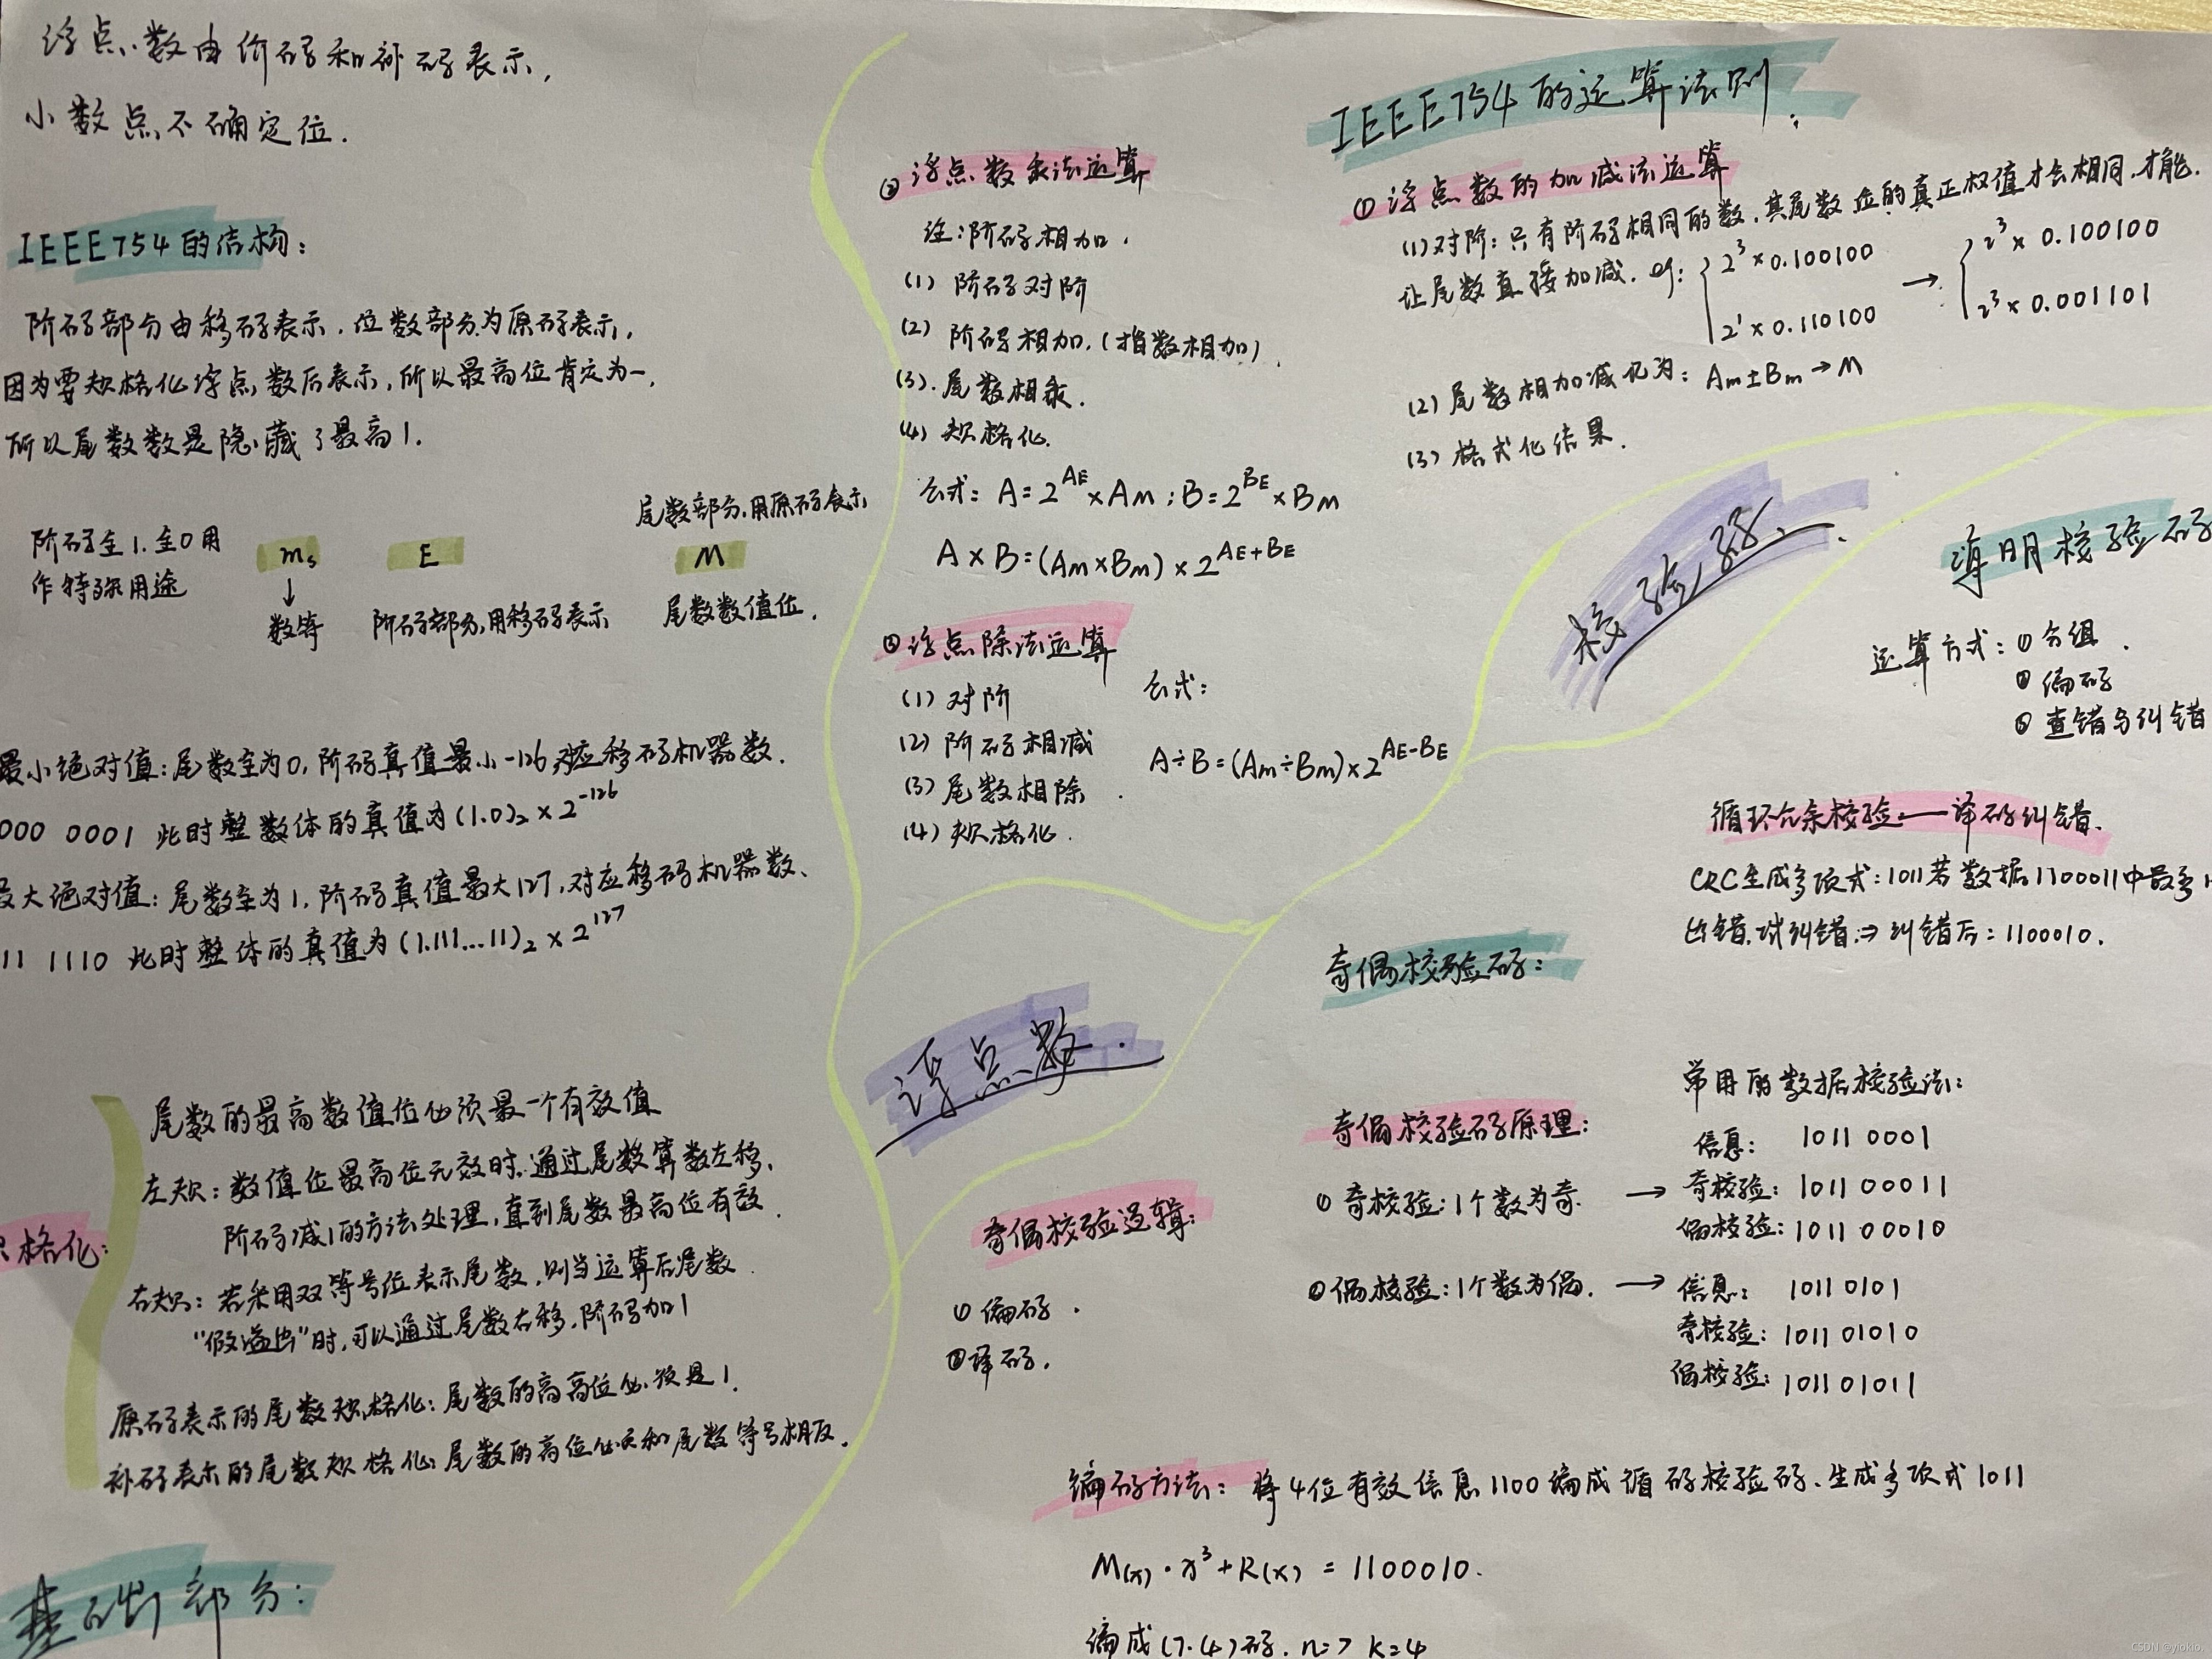 浮点数由阶码和补码表示,
小数点不确定位.
IEEE754的结构:
阶码部分由移码表示.位数部分为原码表示,
因为要规格化浮点数后表示,所以最高位肯定为一,
所以尾数数是隐藏了最高1.
尾数部分.用原码表示
阶码全1.全0用
作特殊用途
ms
E
M
↓
数符
阶码部分,用移码表示
尾数数值位.
最小绝对值:尾数全为0,阶码真值最小-126对应移码机器数.
000 0001 此时整数体的真值为(1.0)₂×2⁻¹²⁶
最大绝对值:尾数全为1,阶码真值最大127,对应移码机器数、
11 1110 此时整体的真值为(1.111...11)₂×2¹²⁷
格化:
尾数的最高数值位必须是一个有效值
左规:数值位最高位无效时.通过尾数算数左移、
阶码减1的方法处理,直到尾数最高位有效.
右规:若采用双符号位表示尾数,则当运算后尾数.
"假溢出"时,可以通过尾数右移,阶码加1
原码表示的尾数规格化:尾数的高高位必须是1.
补码表示的尾数规格化:尾数的高位必须和尾数符号相反.
基础部分:
② 浮点数乘法运算
注:阶码相加.
(1) 阶码对阶
(2) 阶码相加.(指数相加).
(3).尾数相乘.
(4) 规格化.
公式: A=2^AE×Am;B=2^BE×BM
A×B=(Am×Bm)×2^AE+BE
③浮点除法运算
(1) 对阶
(2) 阶码相减
(3) 尾数相除.
(4) 规格化.
公式:
A÷B=(Am÷Bm)×2^AE-BE
浮点数.
IEEE754的运算法则:
① 浮点数的加减法运算
(1)对阶:只有阶码相同的数.其尾数位的真正权值才会相同,才能.
让尾数直接加减. eg: {2³×0.100100 → {2³×0.100100
2¹×0.110100 2³×0.001101
(2) 尾数相加减化为: Am±Bm→M
(3) 格式化结果.
校验码.
海明校验码
运算方式:①分组.
②编码
③查错与纠错
循环冗余校验——译码纠错.
CRC生成多项式:1011若数据1100011中最多1
出错.试纠错⇒纠错后:1100010.
奇偶校验码:
奇偶校验码原理:
① 奇校验:1个数为奇. →
②偶校验:1个数为偶. →
常用的数据校验法:
信息: 1011 0001
奇校验: 1011 00011
偶校验: 1011 00010
信息: 1011 0101
奇校验: 1011 01010
偶校验: 1011 01011
奇偶校验逻辑:
① 编码.
②译码.
编码方法: 将4位有效信息1100编成循码校验码、生成多项式1011
M(x)·x³+R(x)=1100010.
编成(7.4)码. n=7 k=4
CSDN @yiokio.